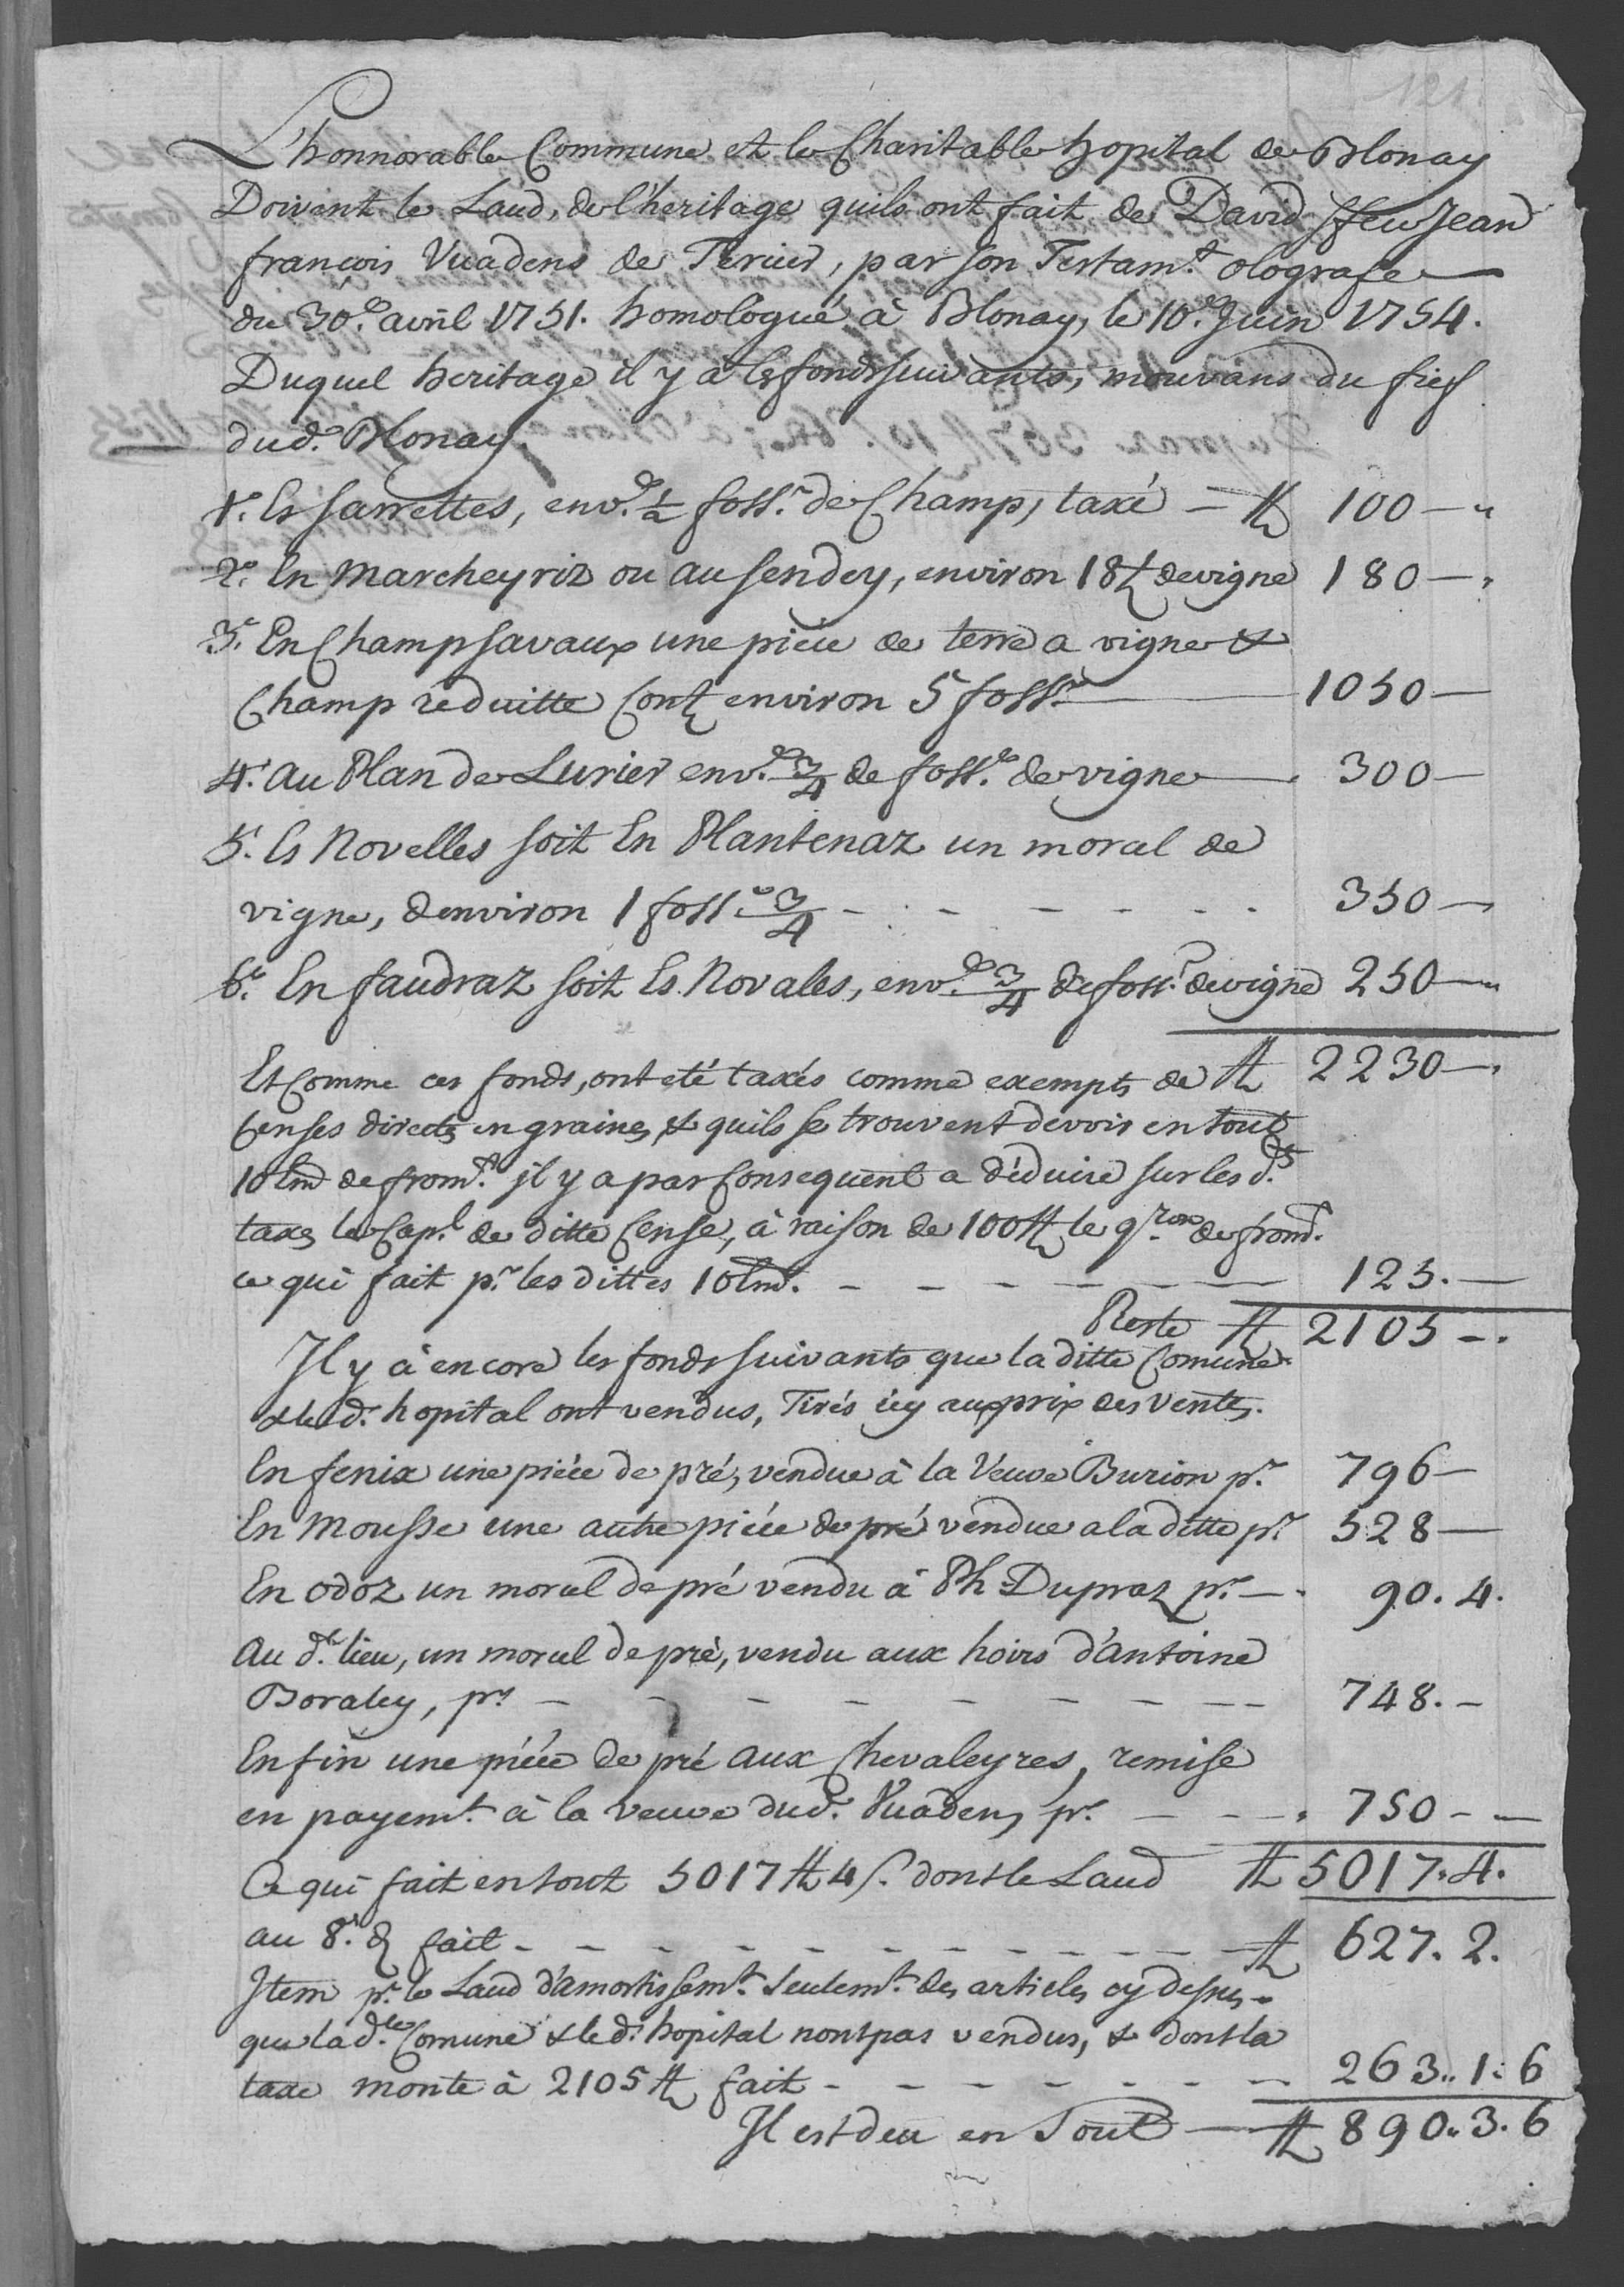 121.
L'honnorable Commune et le Charitable hopital de Blonay
Doivent le Laud, de l'heritage quils ont fait de David ffeu Jean
françois Vuadens de Tercier, par son Testam.t olografe
du 30.e avril 1751. homologué à Blonay, le 10.e Juin 1754.
Duquel heritage il y à les fonds suivants, mouvans du fief
dud.t Blonay.
1.° Es Sarrettes, env.n ½ foss.r de Champ, taxé — ₶ 100 — "
2.° En Marcheyriz ou au Sendey, environ 18 ₶ de vigne 180 — "
3.° En Champsavaux une pièce de terre a vigne &
Champ réduitte Cont environ 5 foss.r — 1050 —
4.° au Plan de Lurier env.n ¾ de foss.r de vigne — 300 —
5.° Es Novelles soit En Plantenaz un morcel de
vigne, denviron 1 foss.r ¾ - - - - - - 350 —
6.° En faudraz soit Es Novales, env.n ¾ de foss.r de vigne 250 — "
Et Comme ces fonds, ont été taxés comme exempts de ₶ 2230 — "
Censes directes en graines, & quils se trouvent devoir en tout
10 Em de from.t il y a par Consequent a déduire sur les d.tes
taxes le Cap.l de ditte Cense, à raison de 100 ₶ le q.ron de from.t
ce qui fait p.r les dittes 10 Em. - - - - - - 125. —
Reste ₶ 2105 - .
Il y à encore les fonds suivants que la ditte Comune
& le d.t hopital ont vendus, Tirés icy aux prix des Ventes.
En fenix une pièce de pré, vendue à la Veuve Burion p.r 796 —
En Mousse une autre pièce de pré vendue a la ditte p.r 528 —
En Odoz un morcel de pré vendu à Ph: Dupraz p.r — . 90. 4.
Au d.t lieu, un morcel de pré, vendu aux hoirs d'Antoine
Boraley, p.r - - - - - - - - - 748. -
Enfin une pièce de pré aux Chevaleyres, remise
en payem.t à la veuve dud.t Vuadens p.r - - - . 750 - —
Ce qui fait en tout 5017 ₶ 4 s. dont le Laud ₶ 5017. 4.
au 8.e d. fait - - - - - - - - - - - ₶ 627. 2.
Item p.r le Laud d'amortissem.t Seulem.t des articles cy dessus -
que lad.te Comune & le d.t hopital nont pas vendus, & dont la
taxe monte à 2105 ₶ fait - - - - - - - 263.. 1: 6
Il est deu en Tout — ₶ 890.. 3. 6